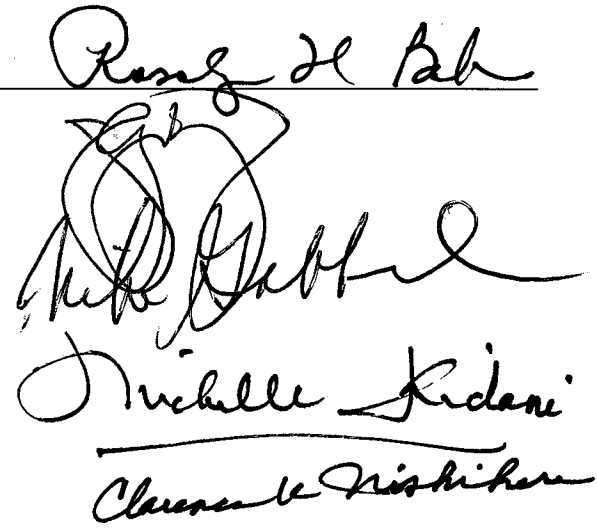 Rosalyn H Baker
Mike Gabbard
Michelle Kidani
Clarence K Nishihara